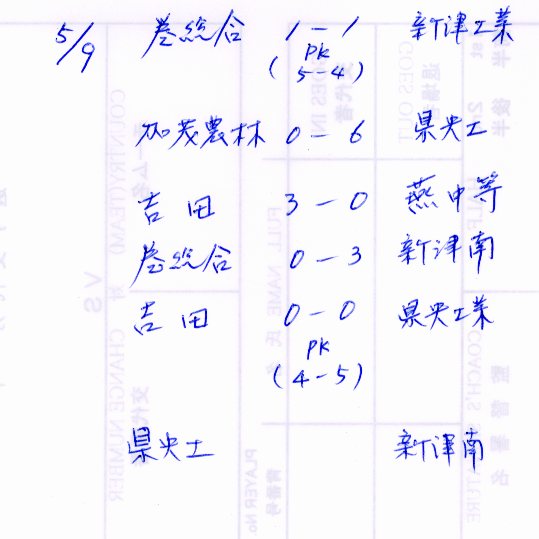 5/9 巻総合 1-1 新津工業
PK
(5-4)
加茂農林 0-6 県央工
吉田 3-0 燕中等
巻総合 0-3 新津南
吉田 0-0 県央工業
PK
(4-5)
県央工 新津南